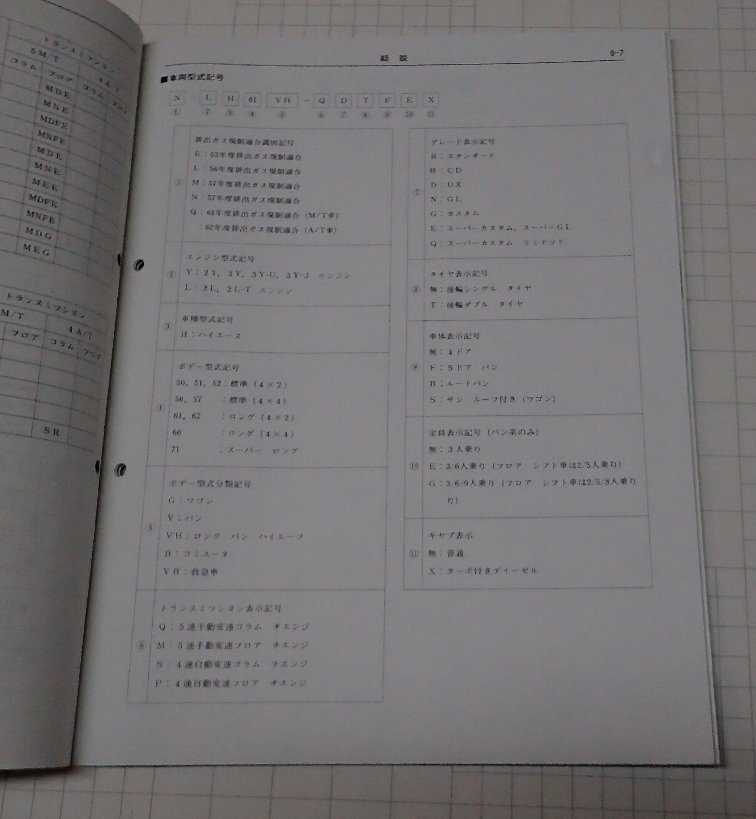 トランスミッション
5M/T 4A/T
コラム フロア コラム フロア
MDE
MNE
MDFE
MNFE
MDE
MNE
MEE
MDFE
MNFE
MDG
MEG
トランスミッション
M/T 4A/T
フロア コラム フロア
SR
総説 0-7
■車両型式記号
N - L H 61 VH - Q D T F E X
① ② ③ ④ ⑤ ⑥ ⑦ ⑧ ⑨ ⑩ ⑪
①
排出ガス規制適合識別記号
E：53年度排出ガス規制適合
L：56年度排出ガス規制適合
M：57年度排出ガス規制適合
N：57年度排出ガス規制適合
Q：61年度排出ガス規制適合（M/T車）
62年度排出ガス規制適合（A/T車）
②
エンジン型式記号
Y：2Y，3Y，3Y-U，3Y-J エンジン
L：2L，2L-T エンジン
③
車種型式記号
H：ハイエース
④
ボデー型式記号
50，51，52：標準（4×2）
56，57 ：標準（4×4）
61，62 ：ロング（4×2）
66 ：ロング（4×4）
71 ：スーパー ロング
⑤
ボデー型式分類記号
G：ワゴン
V：バン
VH：ロング バン ハイルーフ
B：コミュータ
VB：救急車
⑥
トランスミッション表示記号
Q：5速手動変速コラム チェンジ
M：5速手動変速フロア チェンジ
S：4速自動変速コラム チェンジ
P：4速自動変速フロア チェンジ
⑦
グレード表示記号
R：スタンダード
B：CD
D：DX
N：GL
G：カスタム
E：スーパーカスタム，スーパーGL
Q：スーパーカスタム リミテッド
⑧
タイヤ表示記号
無：後輪シングル タイヤ
T：後輪ダブル タイヤ
⑨
車体表示記号
無：4ドア
F：5ドア バン
R：ルートバン
S：サン ルーフ付き（ワゴン）
⑩
定員表示記号（バン系のみ）
無：3人乗り
E：3/6人乗り（フロア シフト車は2/5人乗り）
G：3/6/9人乗り（フロア シフト車は2/5/8人乗り
り）
⑪
キャブ表示
無：普通
X：ターボ付きディーゼル